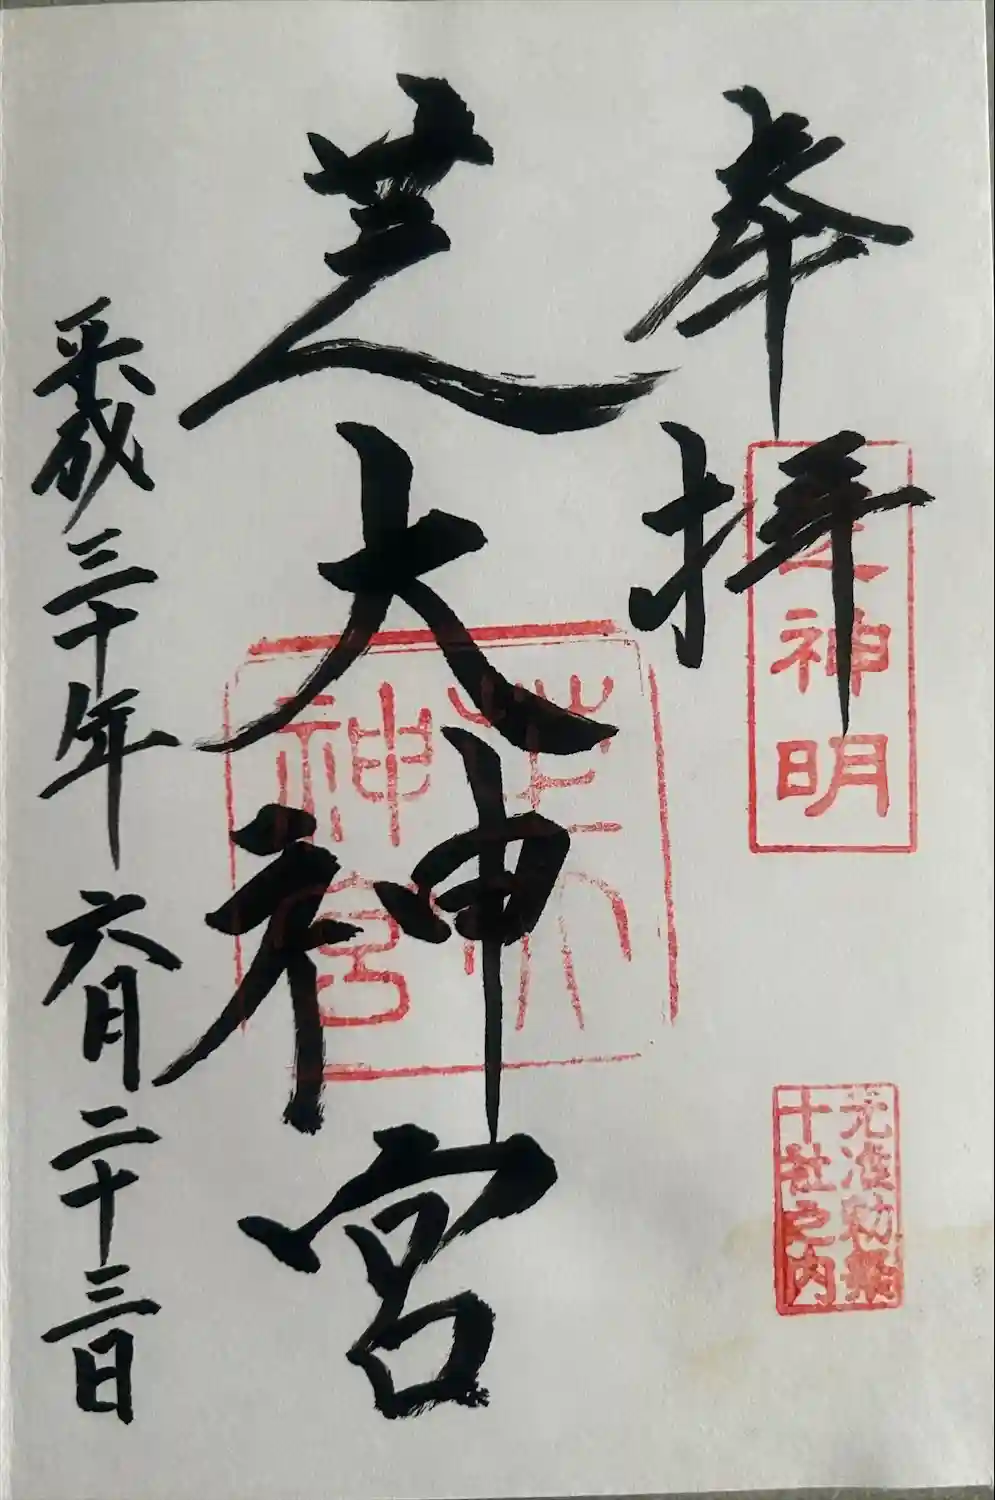 奉拝
芝神明
元准勅祭
十社之内
芝大神宮
芝大
神宮
平成三十年 六月二十三日